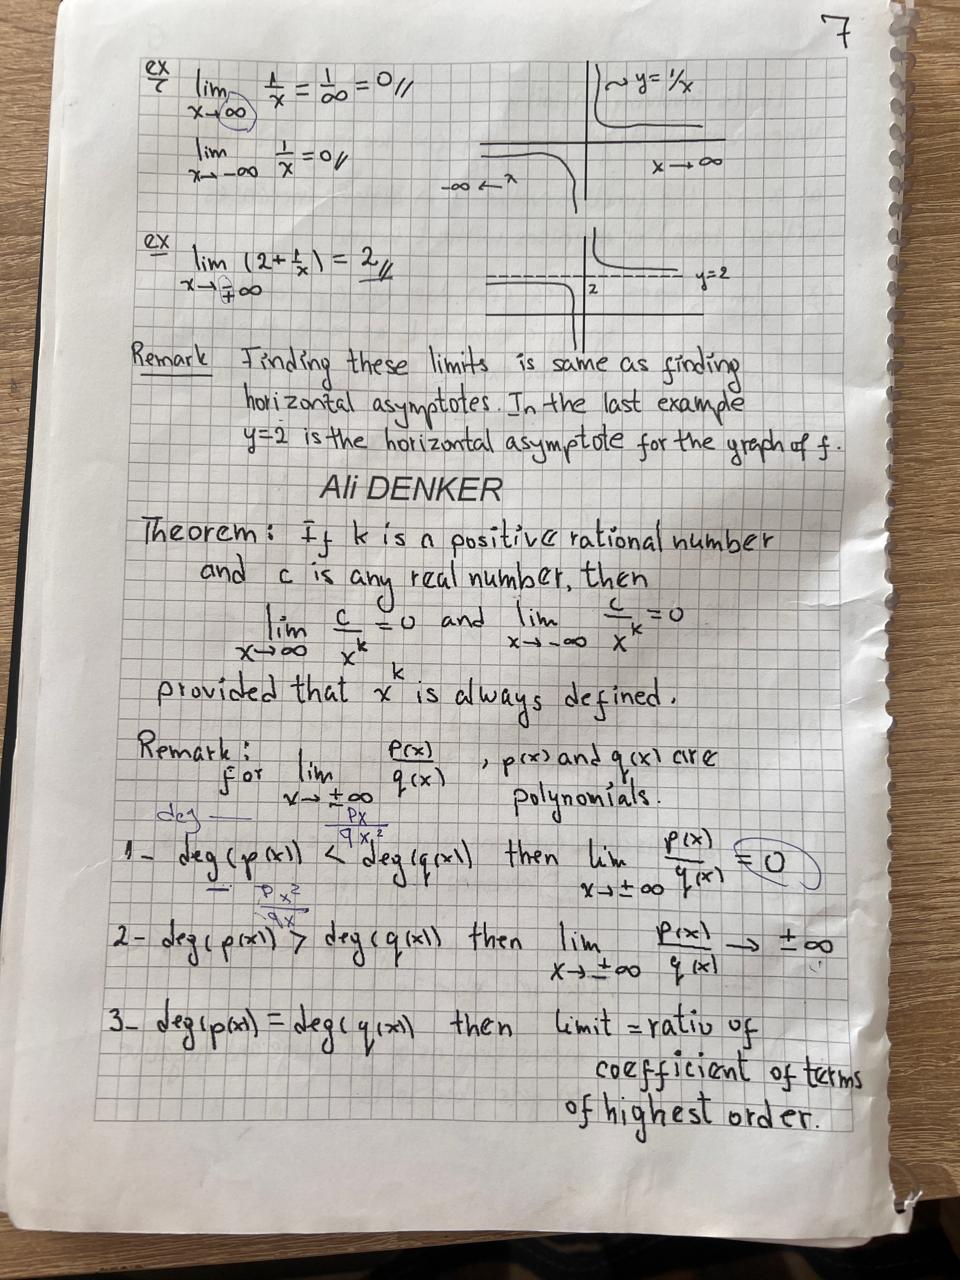 7
ex lim x→∞ 1/x = 1/∞ = 0 //
y = 1/x
lim x→-∞ 1/x = 0 //
x → ∞
-∞ ← x
ex lim x→∓∞ (2+1/x) = 2 //
y=2
2
Remark Finding these limits is same as finding
horizontal asymptotes. In the last example
y=2 is the horizontal asymptote for the graph of f.
Ali DENKER
Theorem: If k is a positive rational number
and c is any real number, then
lim x→∞ c/x^k = 0 and lim x→-∞ c/x^k = 0
provided that x^k is always defined.
Remark: for lim x→±∞ p(x)/q(x), p(x) and q(x) are
polynomials.
deg
Px/qx²
1- deg(p(x)) < deg(q(x)) then lim x→±∞ p(x)/q(x) = 0
Px²/qx
2- deg(p(x)) > deg(q(x)) then lim x→±∞ p(x)/q(x) → ±∞
3- deg(p(x)) = deg(q(x)) then limit = ratio of
coefficient of terms
of highest order.